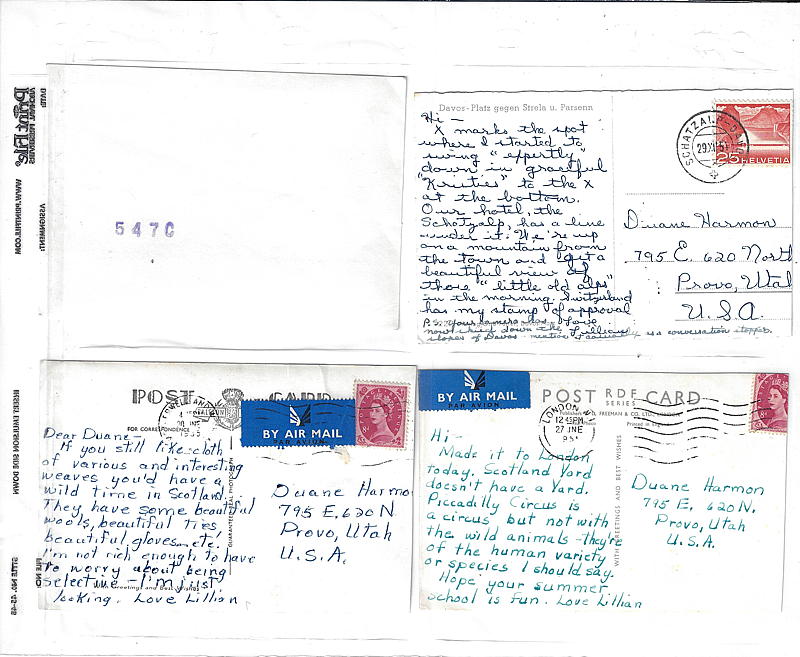 5470
Davos-Platz gegen Strela u. Parsenn
Hi —
X marks the spot
where I started to
swing "expertly"
down in graceful
"Kristies" to the X
at the bottom.
Our hotel, the
Schatzalp, has a line
under it. We're up
on a mountain from
the town and get a
beautiful view of
those "little old alps"
in the morning. Switzerland
has my stamp of approval
Love
Lillian
P.S. Your camera has
now skied down the
slopes of Davos - mention
is a conversation stopper.
25 HELVETIA
Duane Harmon
795 E. 620 North
Provo, Utah
U.S.A.
POST CARD
FOR CORRESPONDENCE
BY AIR MAIL
PAR AVION
Dear Duane —
If you still like cloth
of various and interesting
weaves you'd have a
wild time in Scotland.
They have some beautiful
wools, beautiful ties
beautiful gloves etc.
I'm not rich enough to have
to worry about being
selective - I'm just
looking. Love Lillian
Greetings and Best Wishes
Duane Harmo
795 E. 620 N
Provo, Utah
U.S.A.
BY AIR MAIL
PAR AVION
POST CARD
RDF
SERIES
LONDON
12 45 PM
27 JNE
Hi —
Made it to London
today. Scotland Yard
doesn't have a Yard.
Piccadilly Circus is
a circus but not with
the wild animals - they're
of the human variety
or species I should say.
Hope your summer
school is fun. Love Lillian
WITH GREETINGS AND BEST WISHES
Duane Harmon
795 E. 620 N.
Provo, Utah
U.S.A.